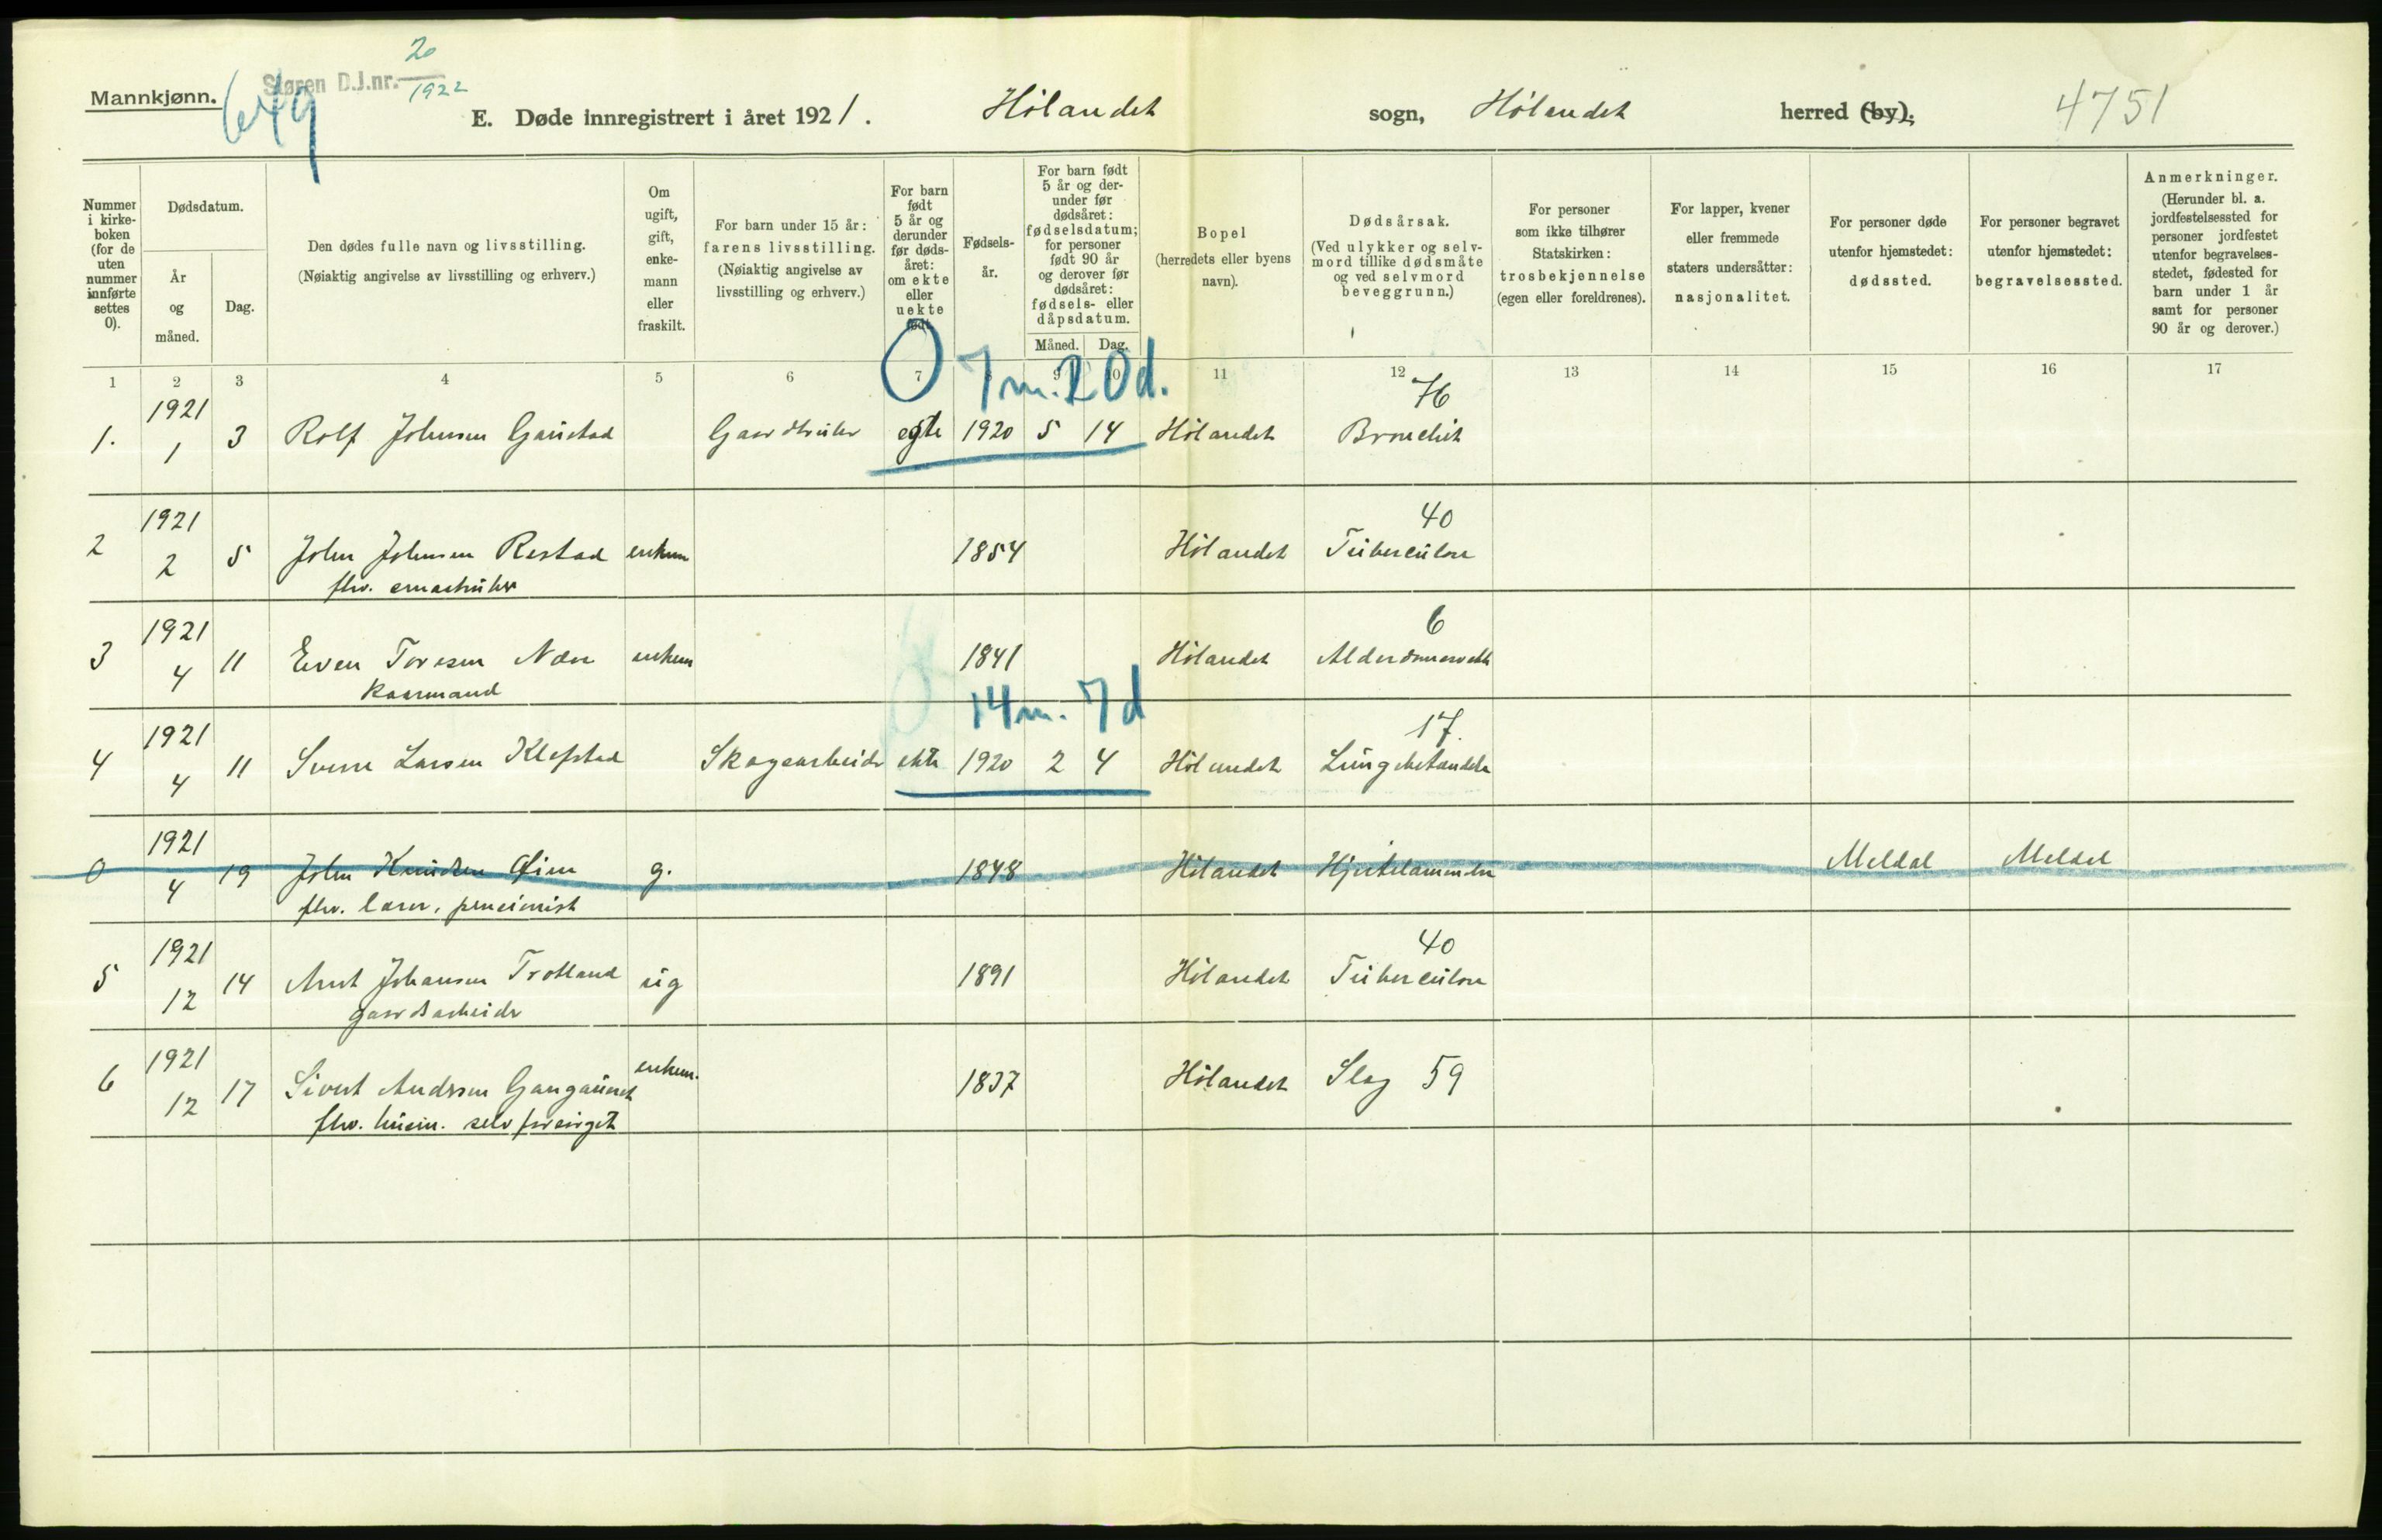 Mannkjønn.
Støren D.J.nr. 20
1922
649
E. Døde innregistrert i året 1921. Hølandet sogn, Hølandet herred (by).
4751
Nummer i kirke-boken (for de uten nummer innførte settes 0).
Dødsdatum.
År og måned.
Dag.
Den dødes fulle navn og livsstilling.
(Nøiaktig angivelse av livsstilling og erhverv.)
Om ugift, gift, enke-mann eller fraskilt.
For barn under 15 år: farens livsstilling.
(Nøiaktig angivelse av livsstilling og erhverv.)
For barn født 5 år og derunder før døds-året: om ekte eller uekte født.
Fødsels-år.
For barn født 5 år og der-under før dødsåret: fødselsdatum; for personer født 90 år og derover før dødsåret: fødsels- eller dåpsdatum.
Måned. Dag.
Bopel
(herredets eller byens navn).
Dødsårsak.
(Ved ulykker og selv-mord tillike dødsmåte og ved selvmord beveggrunn.)
For personer som ikke tilhører Statskirken: trosbekjennelse (egen eller foreldrenes).
For lapper, kvener eller fremmede staters undersåtter: nasjonalitet.
For personer døde utenfor hjemstedet: dødssted.
For personer begravet utenfor hjemstedet: begravelsessted.
Anmerkninger.
(Herunder bl. a. jordfestelsessted for personer jordfestet utenfor begravelses-stedet, fødested for barn under 1 år samt for personer 90 år og derover.)
1 2 3 4 5 6 7 8 9 10 11 12 13 14 15 16 17
0 7m. 20d.
76
1. 1921 1 3 Rolf Johnsen Gaustad Gaardbruker egte 1920 5 14 Hølandet Bronchit
40
2 1921 2 5 John Johnsen Restad enkem 1854 Hølandet Tuberculose
fhv. smaabruker
6
3 1921 4 11 Even Toresen Næve enkem 1841 Hølandet Alderdomssvakh
Kaarmand
14m. 7d
17.
4 1921 4 11 Sverre Larsen Klefstad Skogsarbeider ekte 1920 2 4 Hølandet Lungebetændelse
0 1921 4 19 John Knudsen g. 1848 Hølandet Hjertelammelse Meldal Meldal
fhv. lærer, pensionist
40
5 1921 12 14 Arnt Johansen Trotland ug 1891 Hølandet Tuberculose
gaardsarbeider
6 1921 12 17 Sivert Anderssen Gangaunet enkem. 1837 Hølandet Slag 59
fhv. husm. selvforsørget